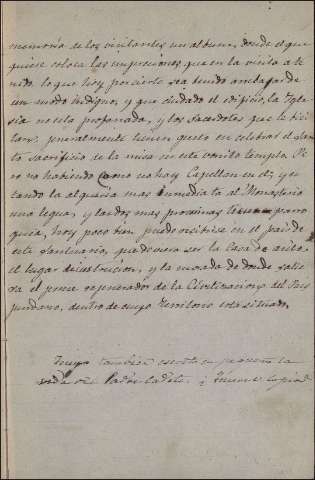 memoria de los visitantes un album, donde el que
quiere coloca las impresiones que en la visita a te
nido. lo que hoy por cierto sea tenido arrebajarde
un modo indigno, y que cuidado el edificio, la Igle
sia no esta profanada, y los Sacerdotes que le visi
tan. generalmente tienen gusto en celebrar el San
to Sacrificio de la misa en este bonito templo. Pe
ro no habiendo como no hay Capellan en el; y es
tando la alqueria mas inmediata al Monasterio
una legua, y las dos mas proximas tienen parro
quia, hoy poco bien puede recibirse en el pais de
este Santuario, que deviera ser la Casa de
el lugar de instruccion, y la morada de donde salie
ra el pince regenerador de la Civilizacion del
jurdano, dentro de cuyo territorio esta situado.
Tengo tambien escrita en pequeño la
vida del Padre Cadete.